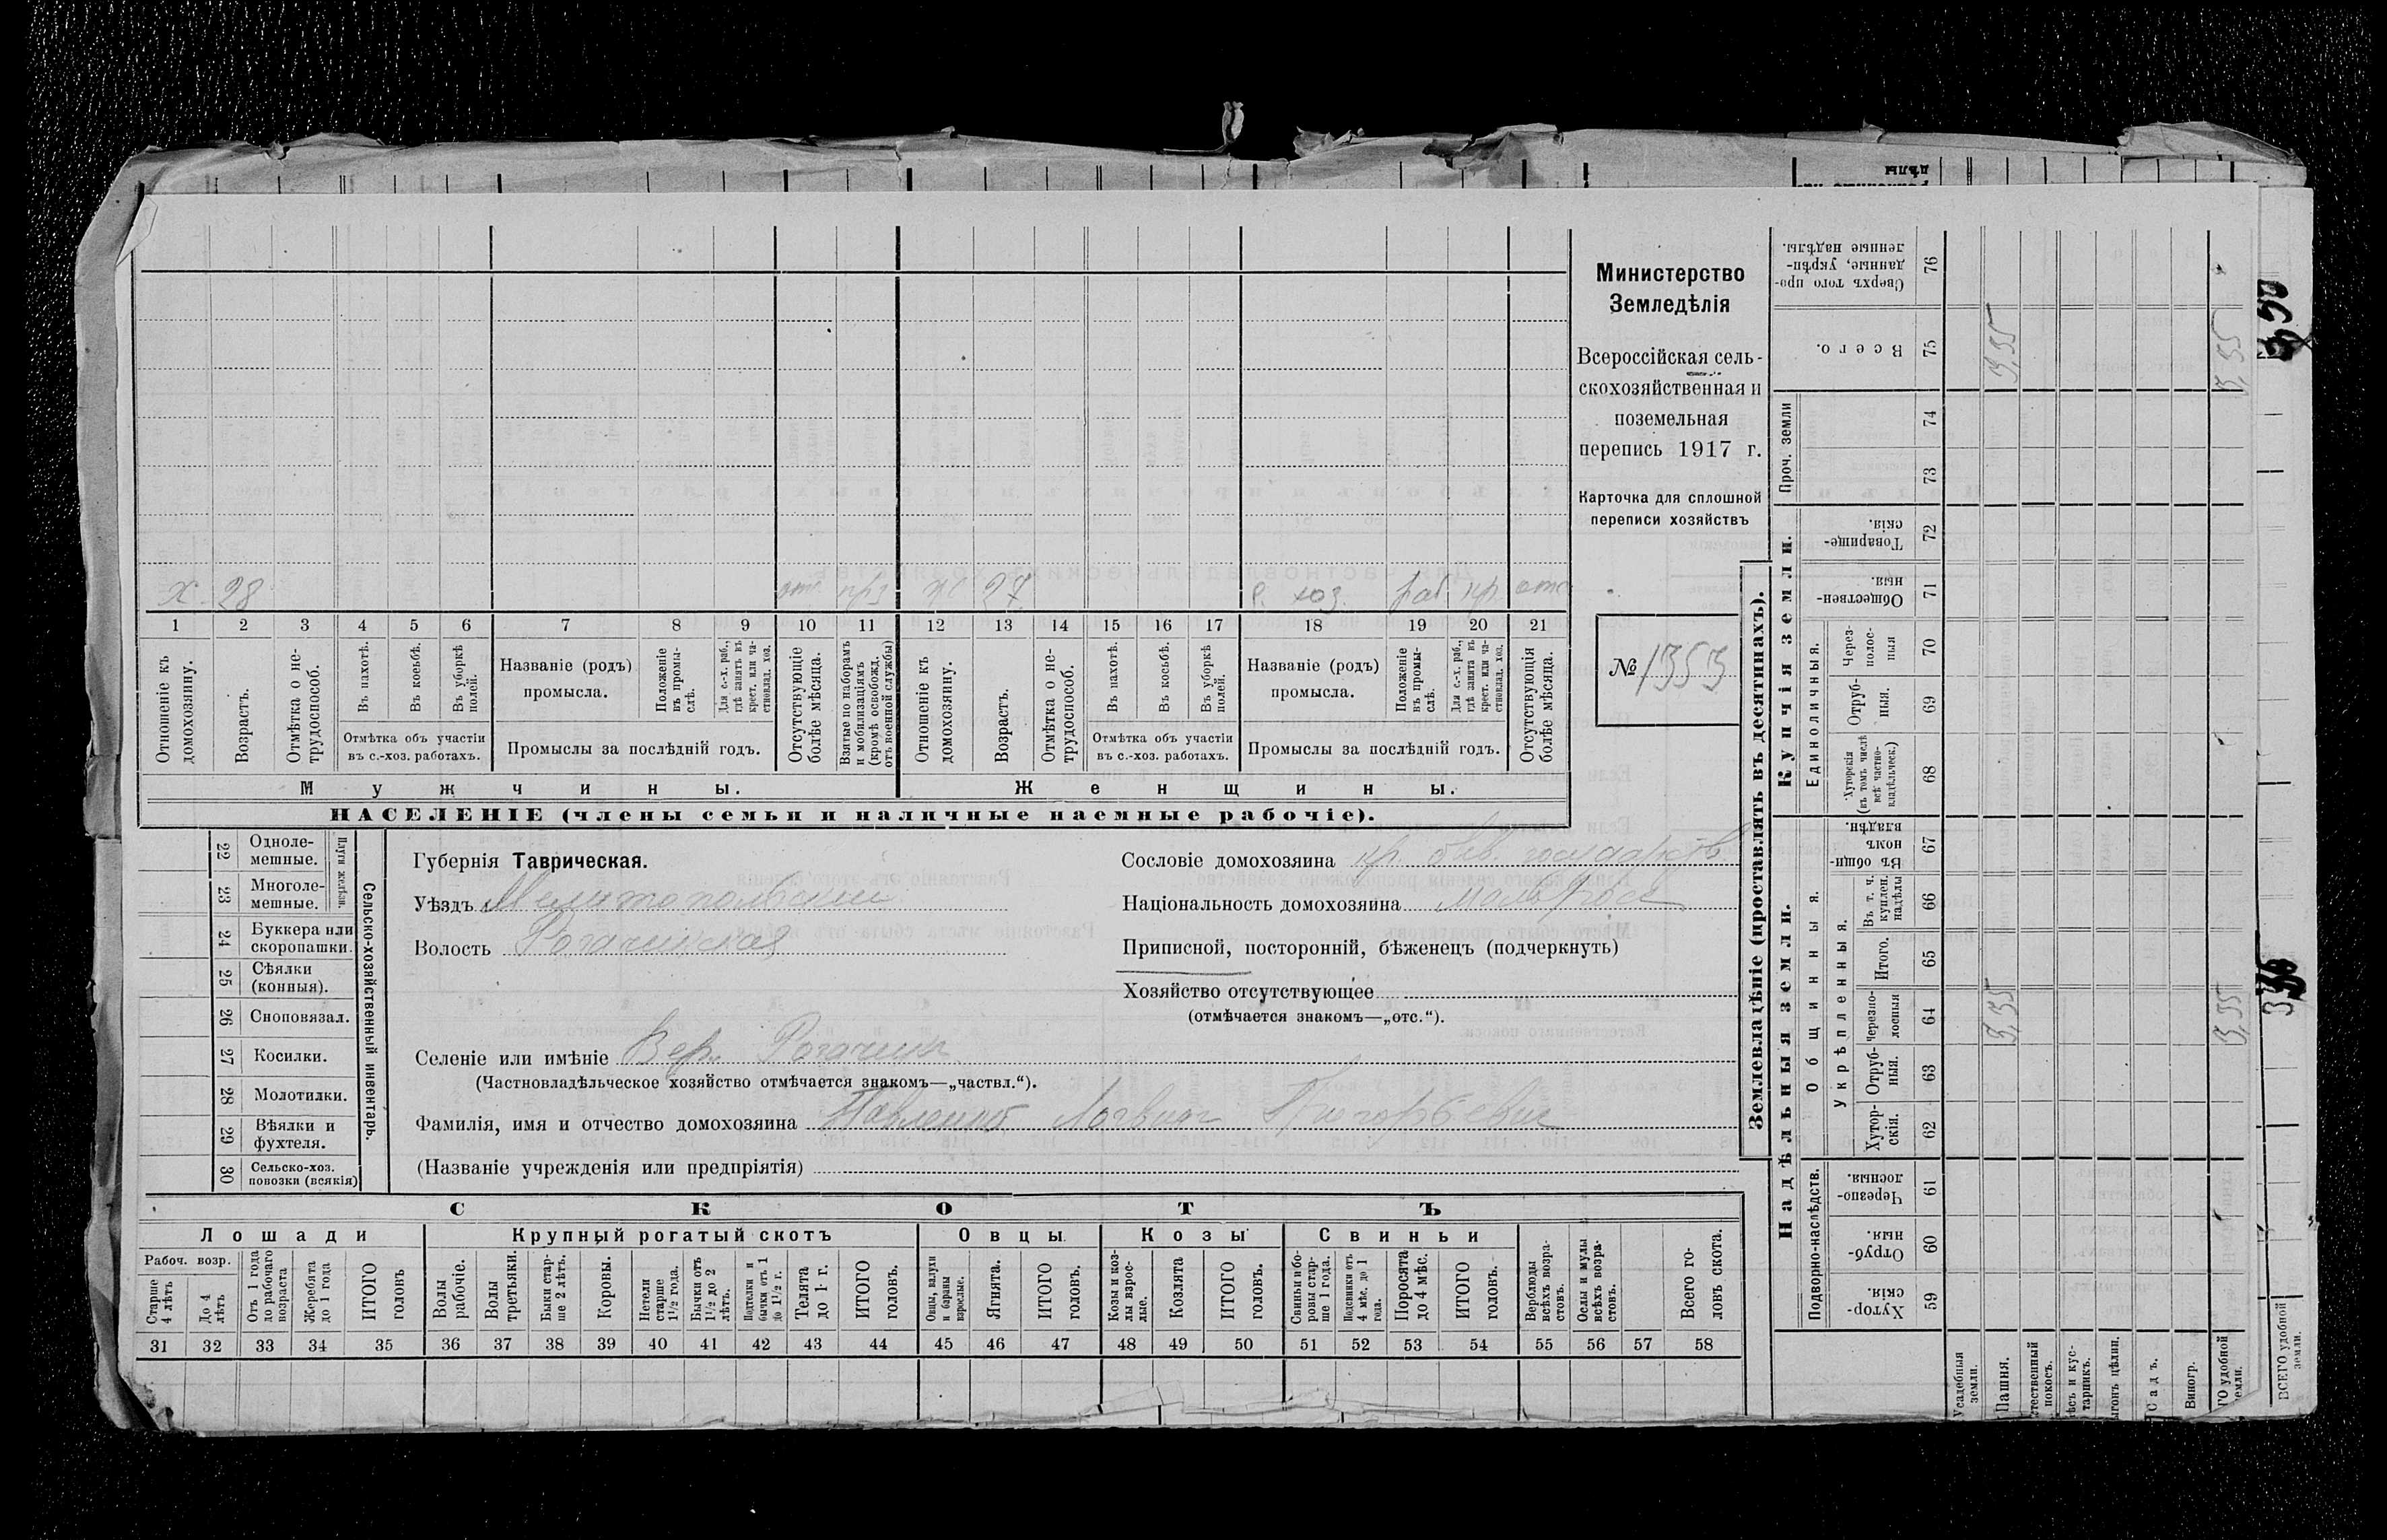 Министерство
Земледѣлія
Всероссійская сель-
скохозяйственная и
поземельная
перепись 1917 г.
Карточка для сплошной
переписи хозяйствъ
№ 1353
х 28 отс 27 с. хоз. раб. кр. отс
1 2 3 4 5 6 7 8 9 10 11 12 13 14 15 16 17 18 19 20 21
Отношеніе къ домохозяину.
Возрастъ.
Отмѣтка о не-трудоспособ.
Въ пахотѣ.
Въ косьбѣ.
Въ уборкѣ полей.
Отмѣтка объ участіи
въ с.-хоз. работахъ.
Названіе (родъ)
промысла.
Положеніе въ промы-слѣ.
Для с.-х. раб., гдѣ занятъ въ крест. или ча-стновлад. хоз.
Промыслы за послѣдній годъ.
Отсутствующіе болѣе мѣсяца.
Взятые по наборамъ и мобилизаціямъ (кромѣ освобожд. отъ военной службы)
Отношеніе къ домохозяину.
Возрастъ.
Отмѣтка о не-трудоспособ.
Въ пахотѣ.
Въ косьбѣ.
Въ уборкѣ полей.
Отмѣтка объ участіи
въ с.-хоз. работахъ.
Названіе (родъ)
промысла.
Положеніе въ промы-слѣ.
Для с.-х. раб., гдѣ занята въ крест. или ча-стновлад. хоз.
Промыслы за послѣдній годъ.
Отсутствующія болѣе мѣсяца.
Мужчины. Женщины.
НАСЕЛЕНІЕ (члены семьи и наличные наемные рабочіе).
Сельско-хозяйственный инвентарь.
Плуги желѣзн.
22 Одноле-мешные.
23 Многоле-мешные.
24 Буккера или скоропашки.
25 Сѣялки (конныя).
26 Сноповязал.
27 Косилки.
28 Молотилки.
29 Вѣялки и фухтеля.
30 Сельско-хоз. повозки (всякія)
Губернія Таврическая.
Уѣздъ Мелитопольский
Волость Рогачинская
Сословіе домохозяина кр.
Національность домохозяина малоросс
Приписной, посторонній, бѣженецъ (подчеркнуть)
Хозяйство отсутствующее
(отмѣчается знакомъ—„отс.“).
Селеніе или имѣніе Вер. Рогачик
(Частновладѣльческое хозяйство отмѣчается знакомъ—„частвл.“).
Фамилія, имя и отчество домохозяина Павленко Логвин Григорьевич
(Названіе учрежденія или предпріятія)
СКОТЪ
Лошади Крупный рогатый скотъ Овцы. Козы Свиньи
Рабоч. возр.
Старше 4 лѣтъ
До 4 лѣтъ
Отъ 1 года до рабочаго возраста
Жеребята до 1 года
ИТОГО головъ
Волы рабочіе.
Волы третьяки.
Быки стар-ше 2 лѣтъ.
Коровы.
Нетели старше 1½ года.
Бычки отъ 1½ до 2 лѣтъ.
Подтелки и бычки отъ 1 до 1½ г.
Телята до 1 г.
ИТОГО головъ.
Овцы, валухи и бараны взрослые.
Ягнята.
ИТОГО головъ.
Козы и коз-лы взрос-лые.
Козлята
ИТОГО головъ.
Свиньи и бо-ровы стар-ше 1 года.
Подсвинки отъ 4 мѣс. до 1 года.
Поросята до 4 мѣс.
ИТОГО головъ.
Верблюды всѣхъ возра-стовъ.
Ослы и мулы всѣхъ возра-стовъ.
Всего го-ловъ скота.
31 32 33 34 35 36 37 38 39 40 41 42 43 44 45 46 47 48 49 50 51 52 53 54 55 56 57 58
Землевладѣніе (проставлять въ десятинахъ).
Надѣльныя земли. Купчія земли. Проч. земли
Подворно-наслѣдств.
Общинныя.
Укрѣпленныя.
Единоличныя.
Хутор-скія. 59
Отруб-ныя. 60
Черезпо-лосныя. 61
Хутор-скія. 62
Отруб-ныя. 63
Черезпо-лосныя 64
Итого. 65
Въ т. ч. куплен. надѣлы 66
Въ общи-номъ владѣн. 67
Хуторскія (въ томъ числѣ всѣ частно-владѣльческ.) 68
Отруб-ныя. 69
Через-полос-ныя 70
Обществен-ныя. 71
Товарище-скія. 72
73
74
Всего. 75
Сверхъ того про-данные, укрѣп-ленные надѣлы. 76
Усадебныя земли.
Пашня. 3,35 3,35
тественный покосъ.
ѣсъ и кус-тарникъ.
ыгонъ цѣлин.
Садъ.
Виногр.
ГО удобной земли. 3,35 3,35
ВСЕГО удобной земли.